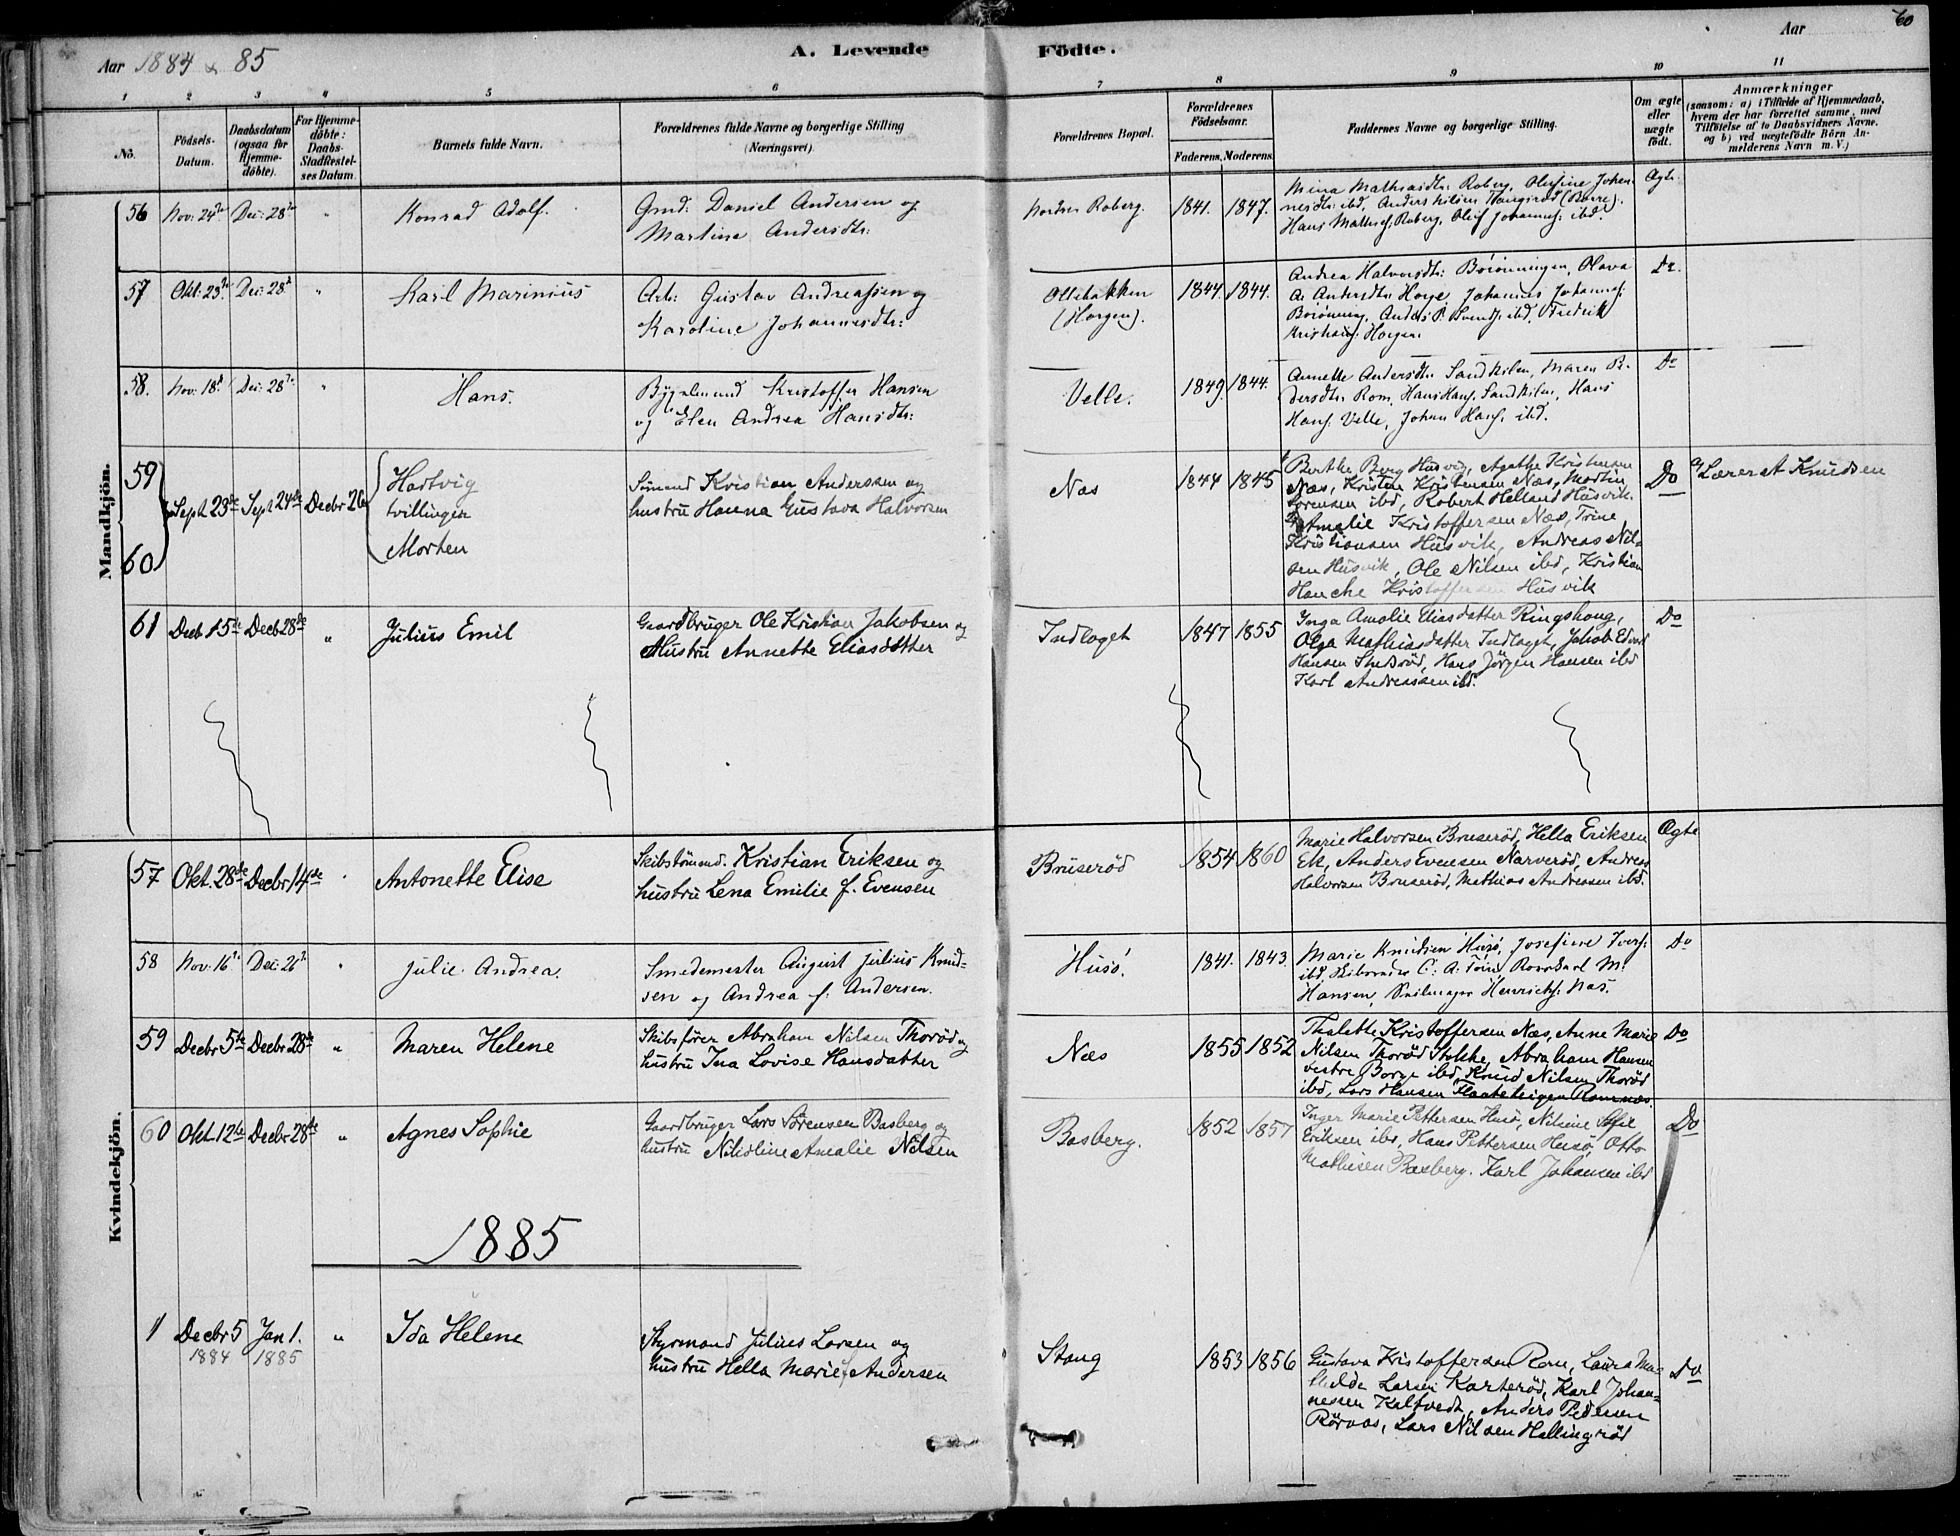 Aar 1884 & 85
A. Levende Födte.
Aar
60
1 2 3 4 5 6 7 8 9 10 11
No.
Födsels-Datum.
Daabsdatum (ogsaa for Hjemmedöbte).
For Hjemmedöbte: Daabs-Stadfæstelses Datum.
Barnets fulde Navn.
Forældrenes fulde Navne og borgerlige Stilling (Næringsvei).
Forældrenes Bopæl.
Forældrenes Födselsaar.
Faderens. Moderens.
Faddernes Navne og borgerlige Stilling.
Om ægte eller uægte födt.
Anmærkninger
(saasom: a) i Tilfælde af Hjemmedaab, hvem der har forrettet samme, med Tilföielse af to Daabsvidners Navne, og b) ved uægtefödte Börn Anmelderens Navn m. V.)
Mandkjön.
56 Nov: 24de Dec: 28de " Konrad Adolf.
Gmd: Daniel Andersen og
Martine Andersdtr:
Nordre Roberg. 1841. 1847.
Mina Mathiasdtr: Roberg, Olufine Johannesdtr: ibd, Anders Nilsen (Borre).
Hans Mathis: Roberg, Oluf Johannes: ibd.
Ægte
57 Okt: 23de Dec: 28d " Karl Marinius
Arb: Gustav Andreassen og
Karoline Johannesdtr:
Ollebakken
(Horgen).
1844. 1844.
Andrea Halvorsdtr: Olava
Andersdtr: Johannes Johannes:
Anders P. Svends: ibd, Fredrik
Kristians: Horgen.
Do.
58. Nov: 18d Dec: 28de " Hans.
Kristoffer Hansen
og Elen Andrea Hansdtr:
Velle. 1849. 1844.
Annette Andersdtr: Sandkilen, Maren
dersdtr: Rom, Hans Hans: Sandkilen, Hans
Hans: Velle, Johan Hans: ibd.
Do
59
60
Sept 23de Sept 24de Decbr 26
Hartvig
tvillinger
Morten
Sömand Kristian Anderssen og
hustru Hanna Gustava Halvorsen
Næs 1844 1845
Berthe Berg Husvig, Agathe Kristensen
Næs, Kristen Kristensen Næs, Martin
Sörensen ibd, Robert Helland Husvik.
Amalie Kristoffersen Næs, Trine
Kristiansen Husvik, Andreas Nilsen
Husvik, Ole Nilsen ibd, Kristian
Hanche Kristoffersen Husvik
Do a) Lærer A Knudsen
61 Decb 15de Decb 28de " Julius Emil
Gaardbruger Ole Kristian Jakobsen og
Hustru Annette Eliasdatter
Indlaget 1847 1855
Inga Amalie Eliasdatter Ringshoug,
Olga Mathiasdatter Indlaget, Jakob Edvard
Hansen Hans Jörgen Hansen ibd
Karl Andreassen ibd.
Do
Kvindekjön.
57 Okt. 28de Decbr 14de Antonette Elise
Skibstömmd. Kristian Eriksen og
hustru Lena Emilie f. Evensen
Bruseröd 1854 1860
Marie Halvorsen Bruseröd, Hella Eriksen
Ek, Anders Evensen Narveröd, Andreas
Halvorsen Bruseröd, Mathias Andreasen ibd.
Ægte
58 Nov: 16de Dec: 26d " Julie Andrea.
Smedemester August Julius Knudsen
og Andrea f: Andersen.
Husö. 1841. 1843.
Marie Knudsen Husö, Josefine Ivers:
ibd, C: A: M:
Hansen, Seilmager Henriks: Næs.
Do
59 Decbr 5te Decbr 28de " Maren Helene
Skibsförer Abraham Nilsen Thoröd og
hustru Ina Lovise Hansdatter
Næs 1855 1852
Thalette Kristoffersen Næs, Anne Marie
Nilsen Thoröd Stokke, Abraham Hansen
vestre Borge ibd, Knud Nilsen Thoröd
ibd, Lars Hansen Ramnæs.
Do
60 Okt. 12te Decbr 28de " Agnes Sophie
Gaardbruger Lars Sörensen Basberg og
hustru Nikoline Amalie Nilsen
Basberg. 1852 1857
Inger Marie Pettersen Husö, Nilsine Sofie
Eriksen ibd, Hans Pettersen Husö, Otto
Mathisen Basberg. Karl Johansen ibd
Do
1885
1 Decbr 5 Jan 1. " Ida Helene
1884 1885
Styrmand Julius Larsen og
hustru Hella Marie f Andersen
Stang 1853 1856
Gustava Kristoffersen Rom, Laura Mathilde
Larsen Karteröd, Karl Johannessen
Kaltvedt, Anders Pedersen
Rörvos, Lars Nilsen Hallingröd
Do